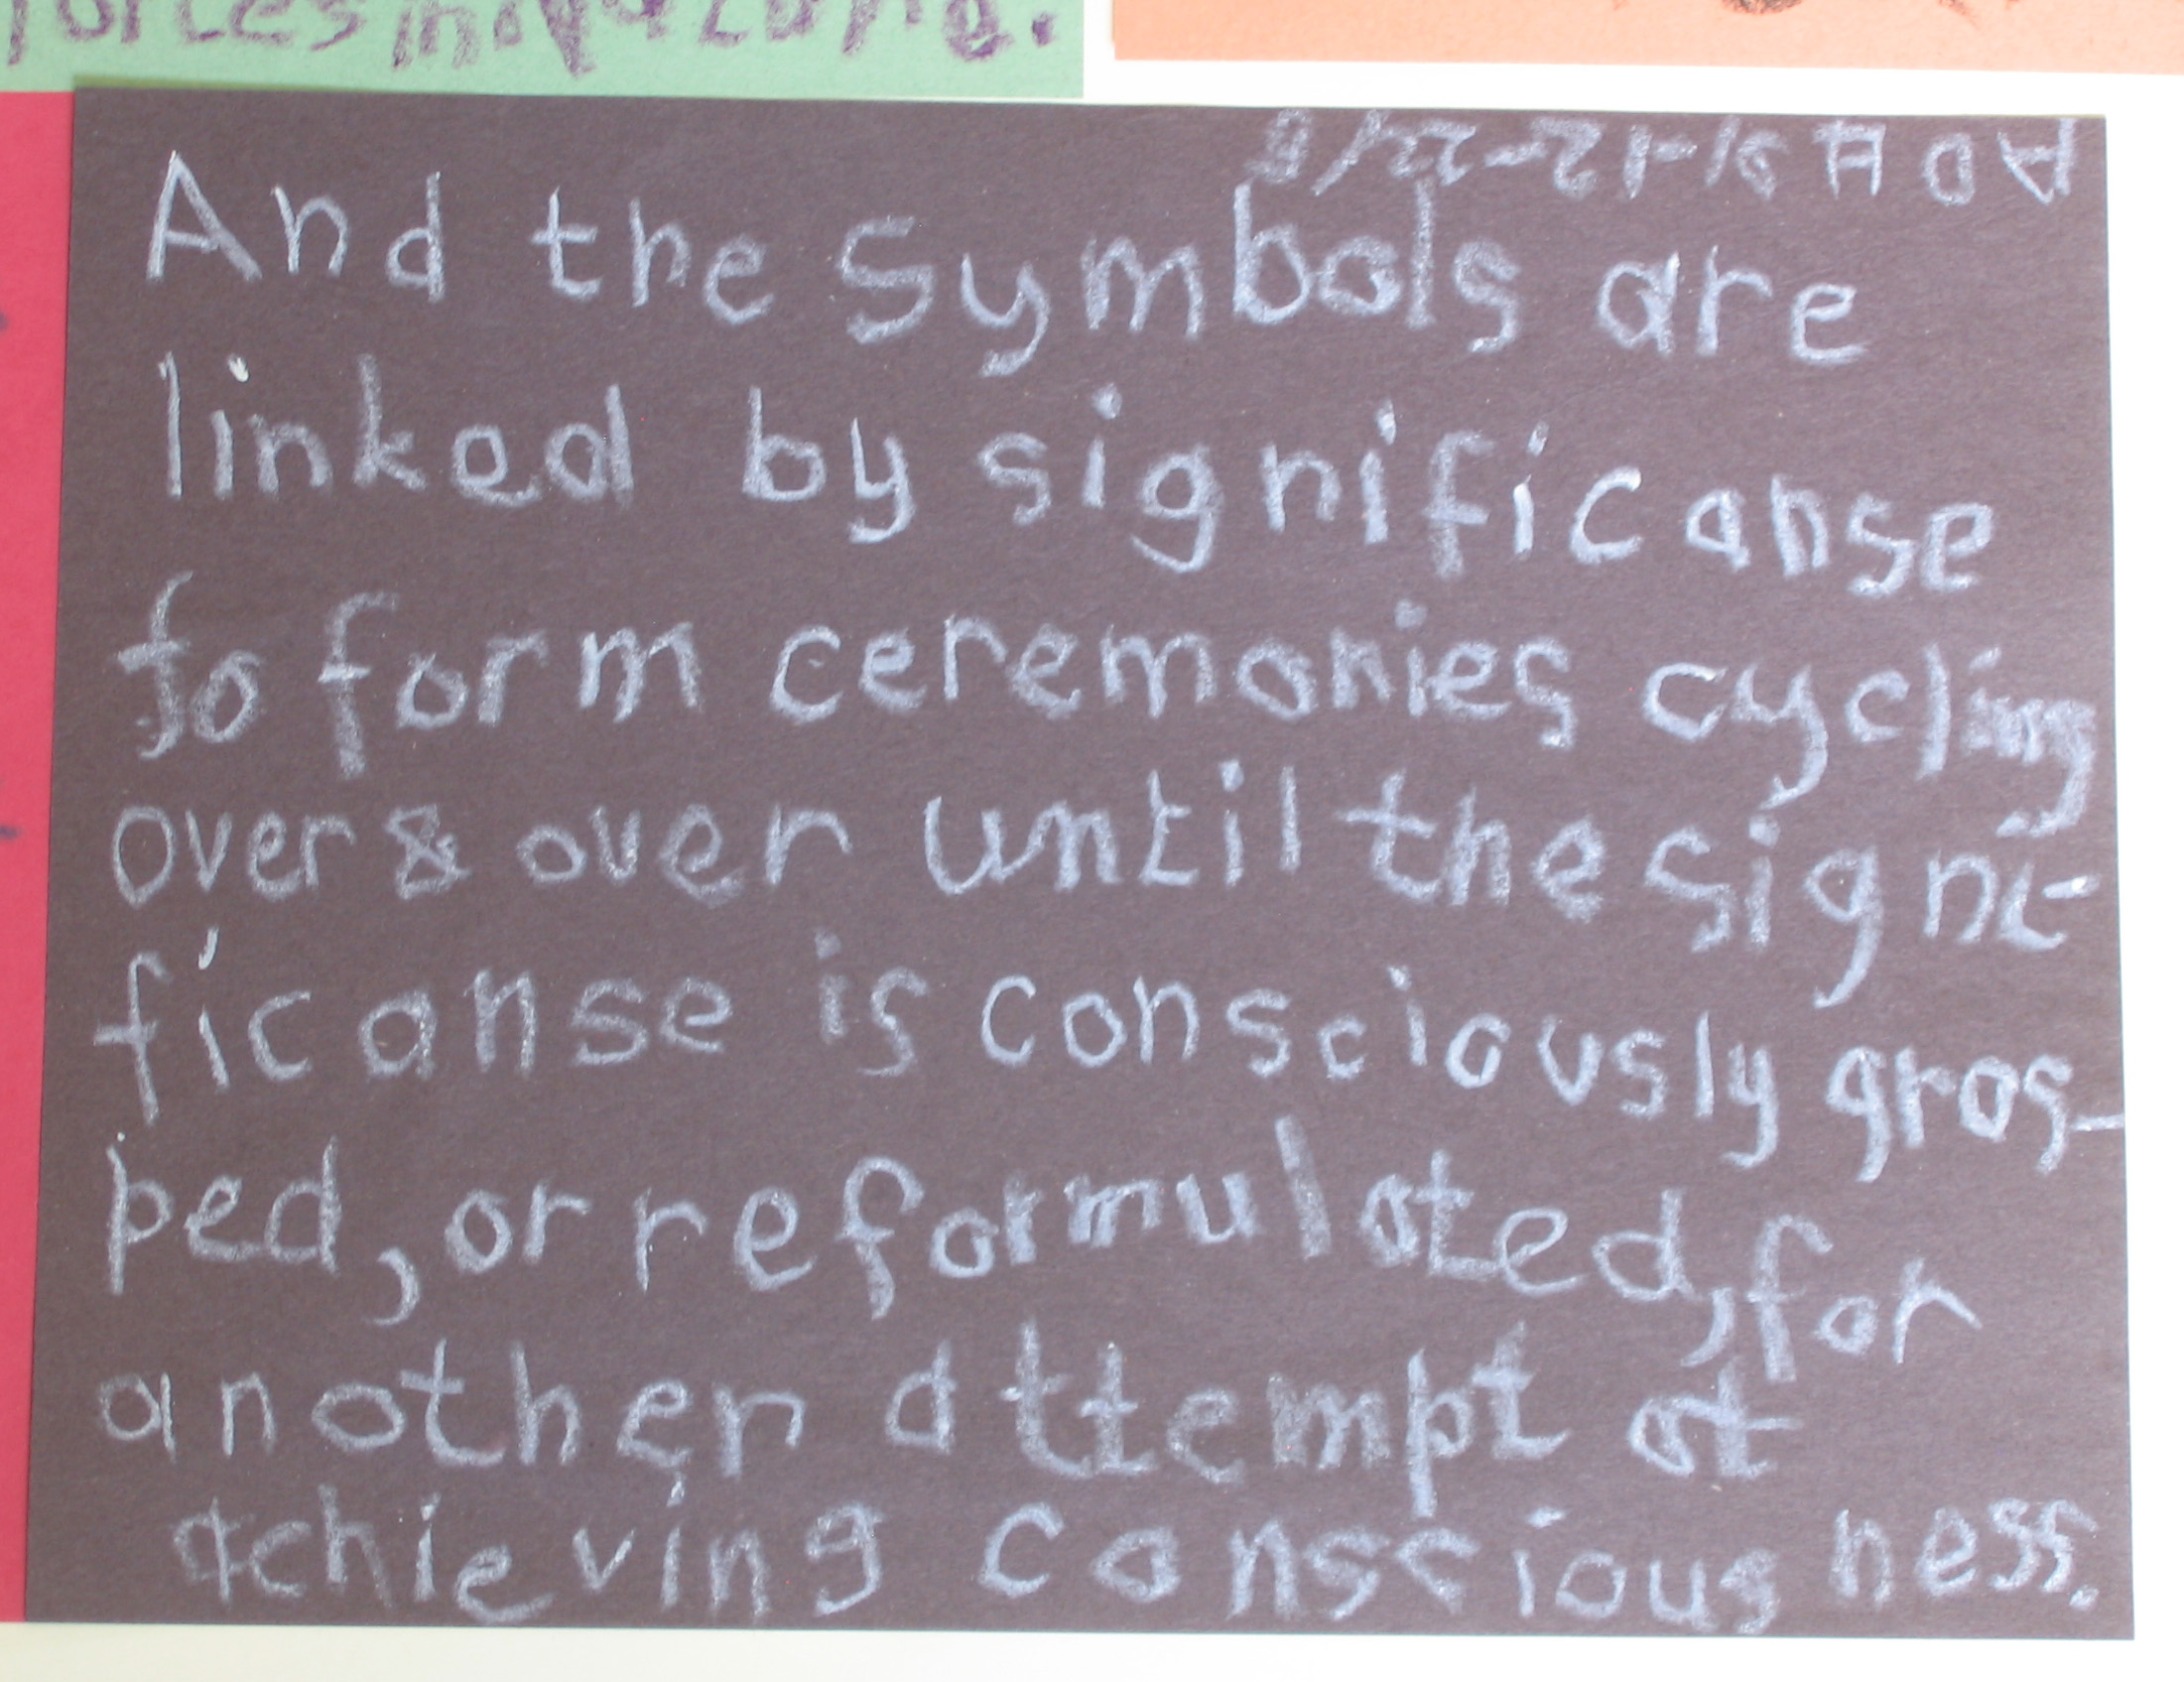 forces in
And the Symbols are
linked by significanse
to form ceremonies cycling
over & over until the signi-
ficanse is consciously gras-
ped, or reformulated, for
another attempt at
achieving consciousness.